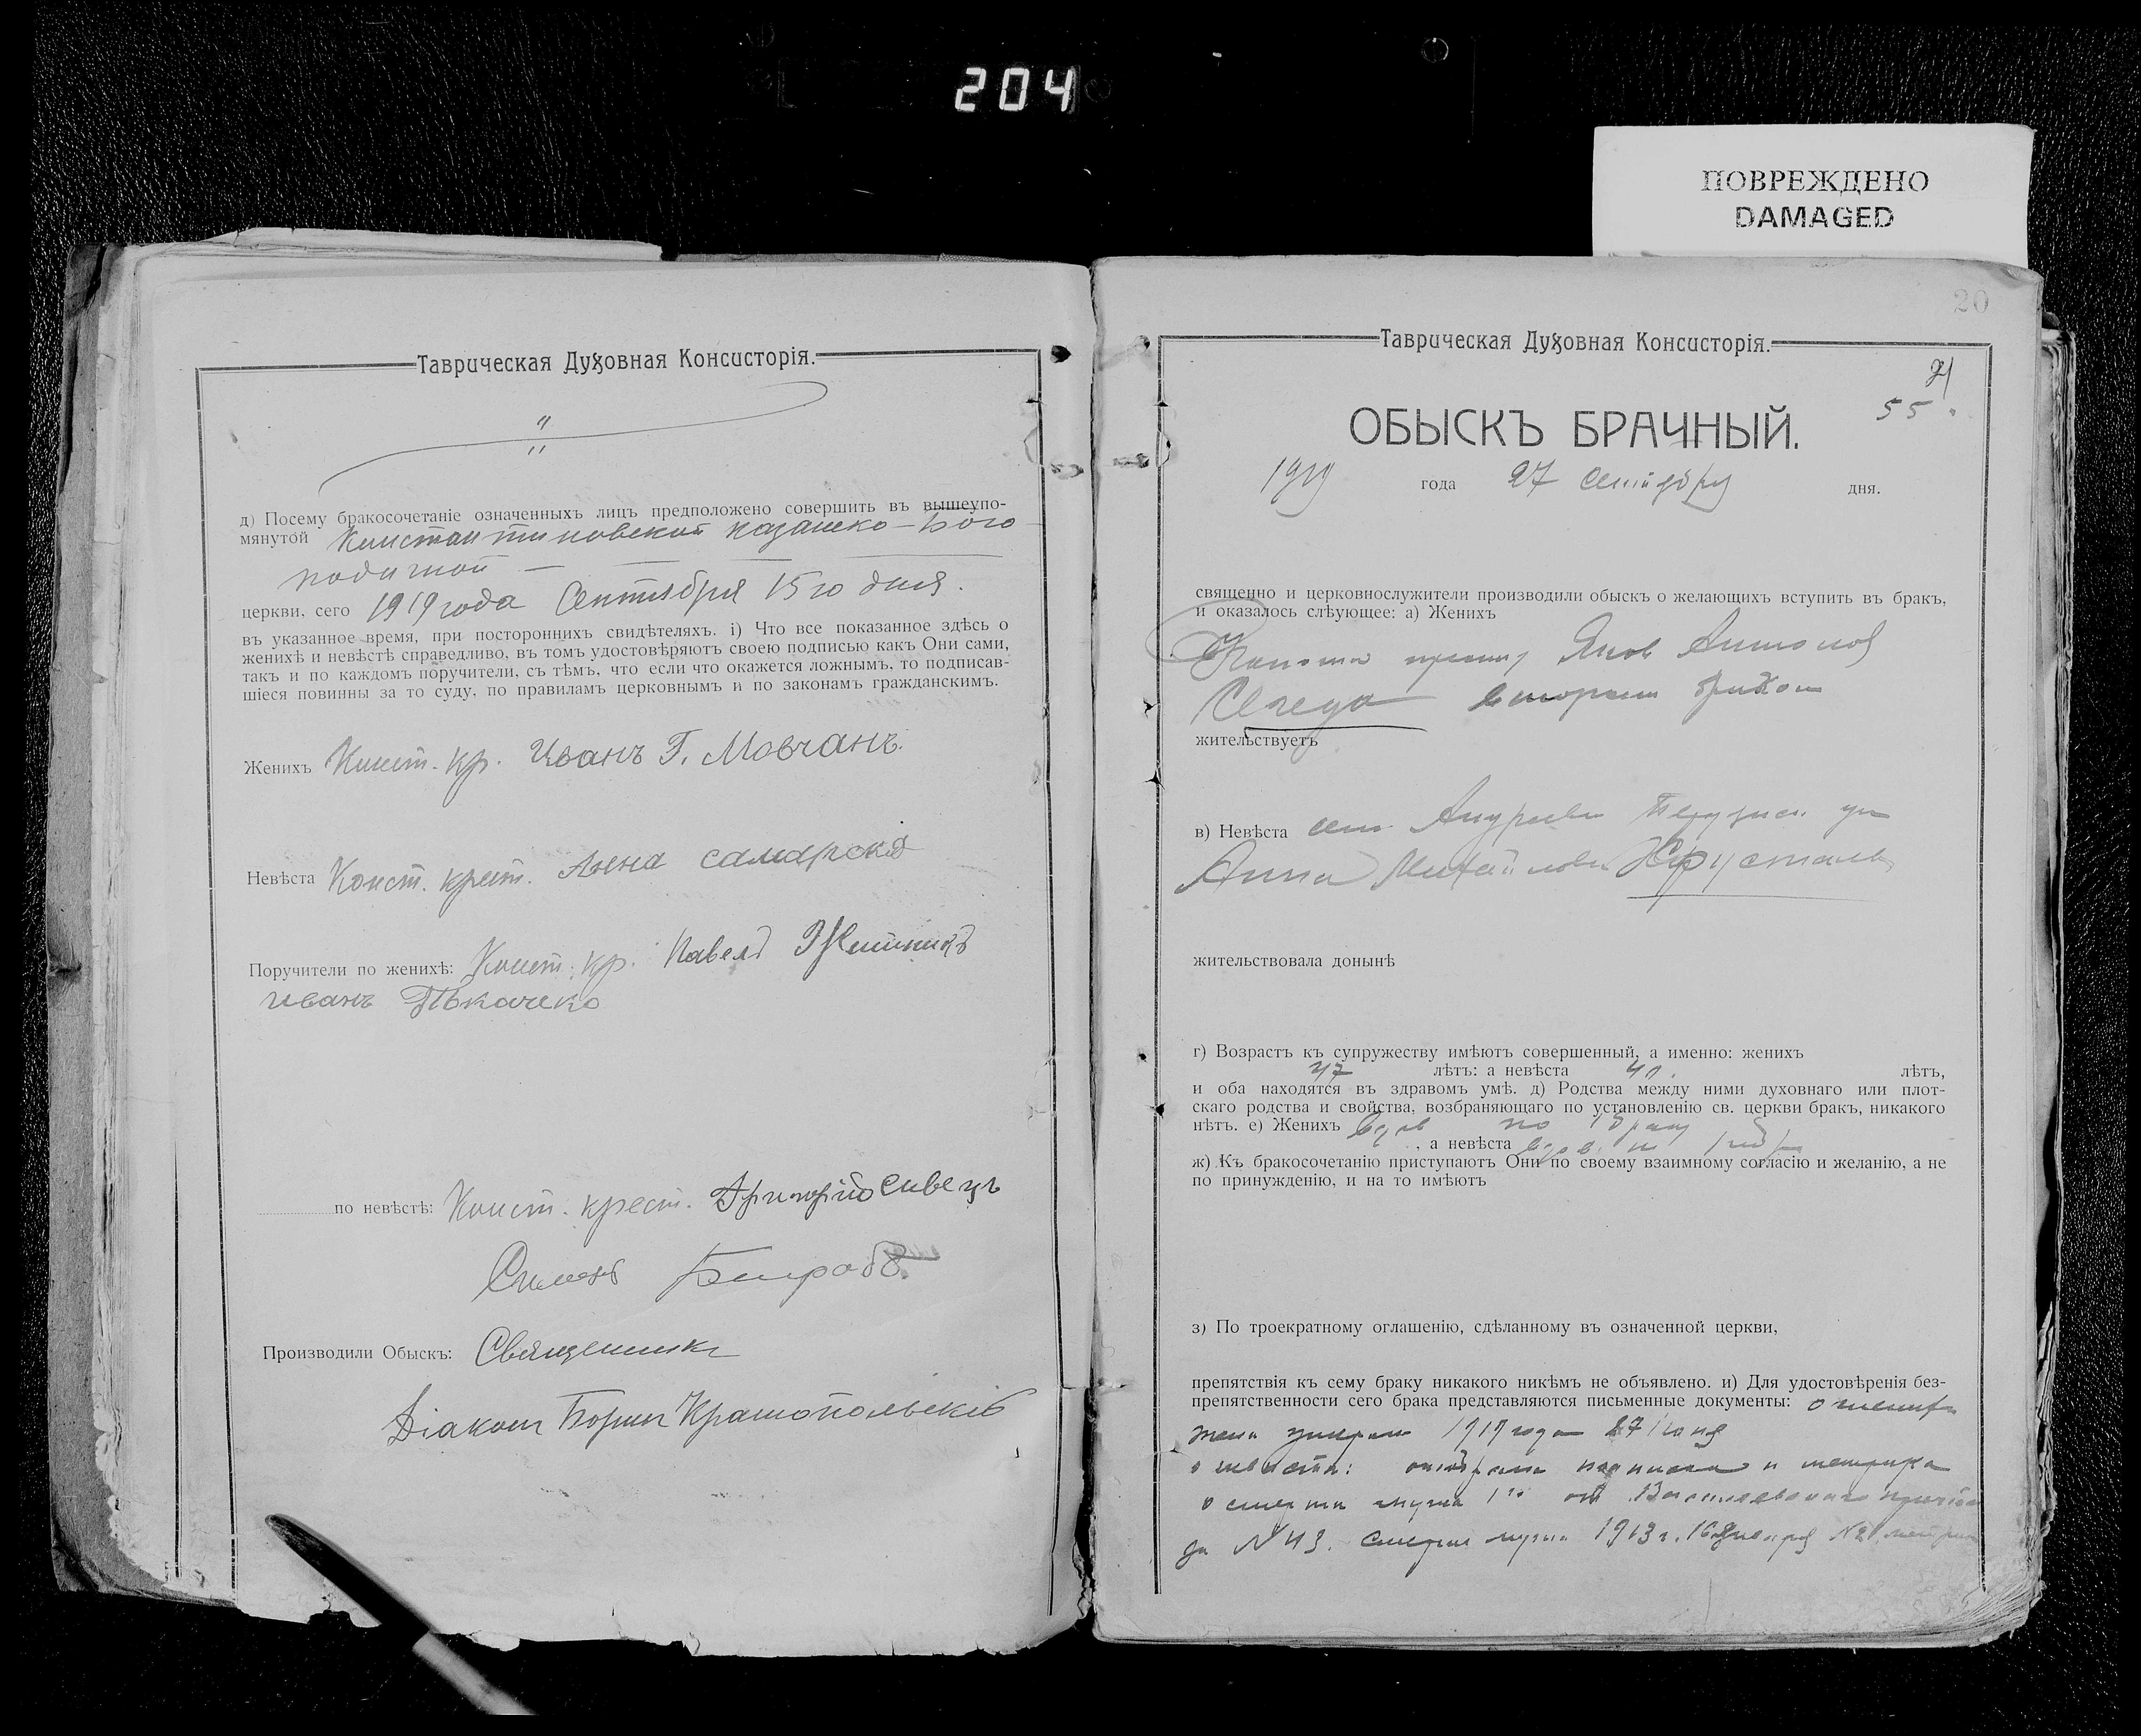 204
ПОВРЕЖДЕНО
DAMAGED
Таврическая Духовная Консисторія.
"
д) Посему бракосочетаніе означенныхъ лицъ предположено совершить въ вышеупо-
мянутой Константиновской Казанско-Бого
родичной
церкви, сего 1919 года Сентября 15го дня.
въ указанное время, при постороннихъ свидѣтеляхъ. і) Что все показанное здѣсь о
женихѣ и невѣстѣ справедливо, въ томъ удостовѣряютъ своею подписью какъ Они сами,
такъ и по каждомъ поручители, съ тѣмъ, что если что окажется ложнымъ, то подписав-
шіеся повинны за то суду, по правиламъ церковнымъ и по законамъ гражданскимъ.
Женихъ Конст. кр. Иванъ Г. Мовчанъ.
Невѣста Конст. крест. Анна самарская
Поручители по женихѣ: Конст. кр. Павелъ
иванъ Ткаченко
по невѣстѣ: Конст. крест. Григорій сивецъ
Производили Обыскъ: Священникъ
Діаконъ Борисъ Краснопольскій
20
Таврическая Духовная Консисторія.
55
ОБЫСКЪ БРАЧНЫЙ.
1919 года 27 Сентября дня.
священно и церковнослужители производили обыскъ о желающихъ вступить въ бракъ,
и оказалось слѣующее: а) Женихъ
Яков Антонов
Середа вторым браком
жительствуетъ
в) Невѣста сел Андреевки Бердянск. у
Анна Михайлова
жительствовала донынѣ
г) Возрастъ къ супружеству имѣютъ совершенный, а именно: женихъ
47 лѣтъ: а невѣста лѣтъ,
и оба находятся въ здравомъ умѣ. д) Родства между ними духовнаго или плот-
скаго родства и свойства, возбраняющаго по установленію св. церкви бракъ, никакого
нѣтъ. е) Женихъ вдов по 1 браку
, а невѣста вдов. по 1 бр
ж) Къ бракосочетанію приступаютъ Они по своему взаимному согласію и желанію, а не
по принужденію, и на то имѣютъ
з) По троекратному оглашенію, сдѣланному въ означенной церкви,
препятствія къ сему браку никакого никѣмъ не объявлено. и) Для удостовѣренія без-
препятственности сего брака представляются письменные документы: о женихе
жена умерла 1919 года 27
о невести: отобрана подписка и метрика
о смерти мужа 1го от причта
за N 43. Смерти мужа 1913 г. 16 Января N 2